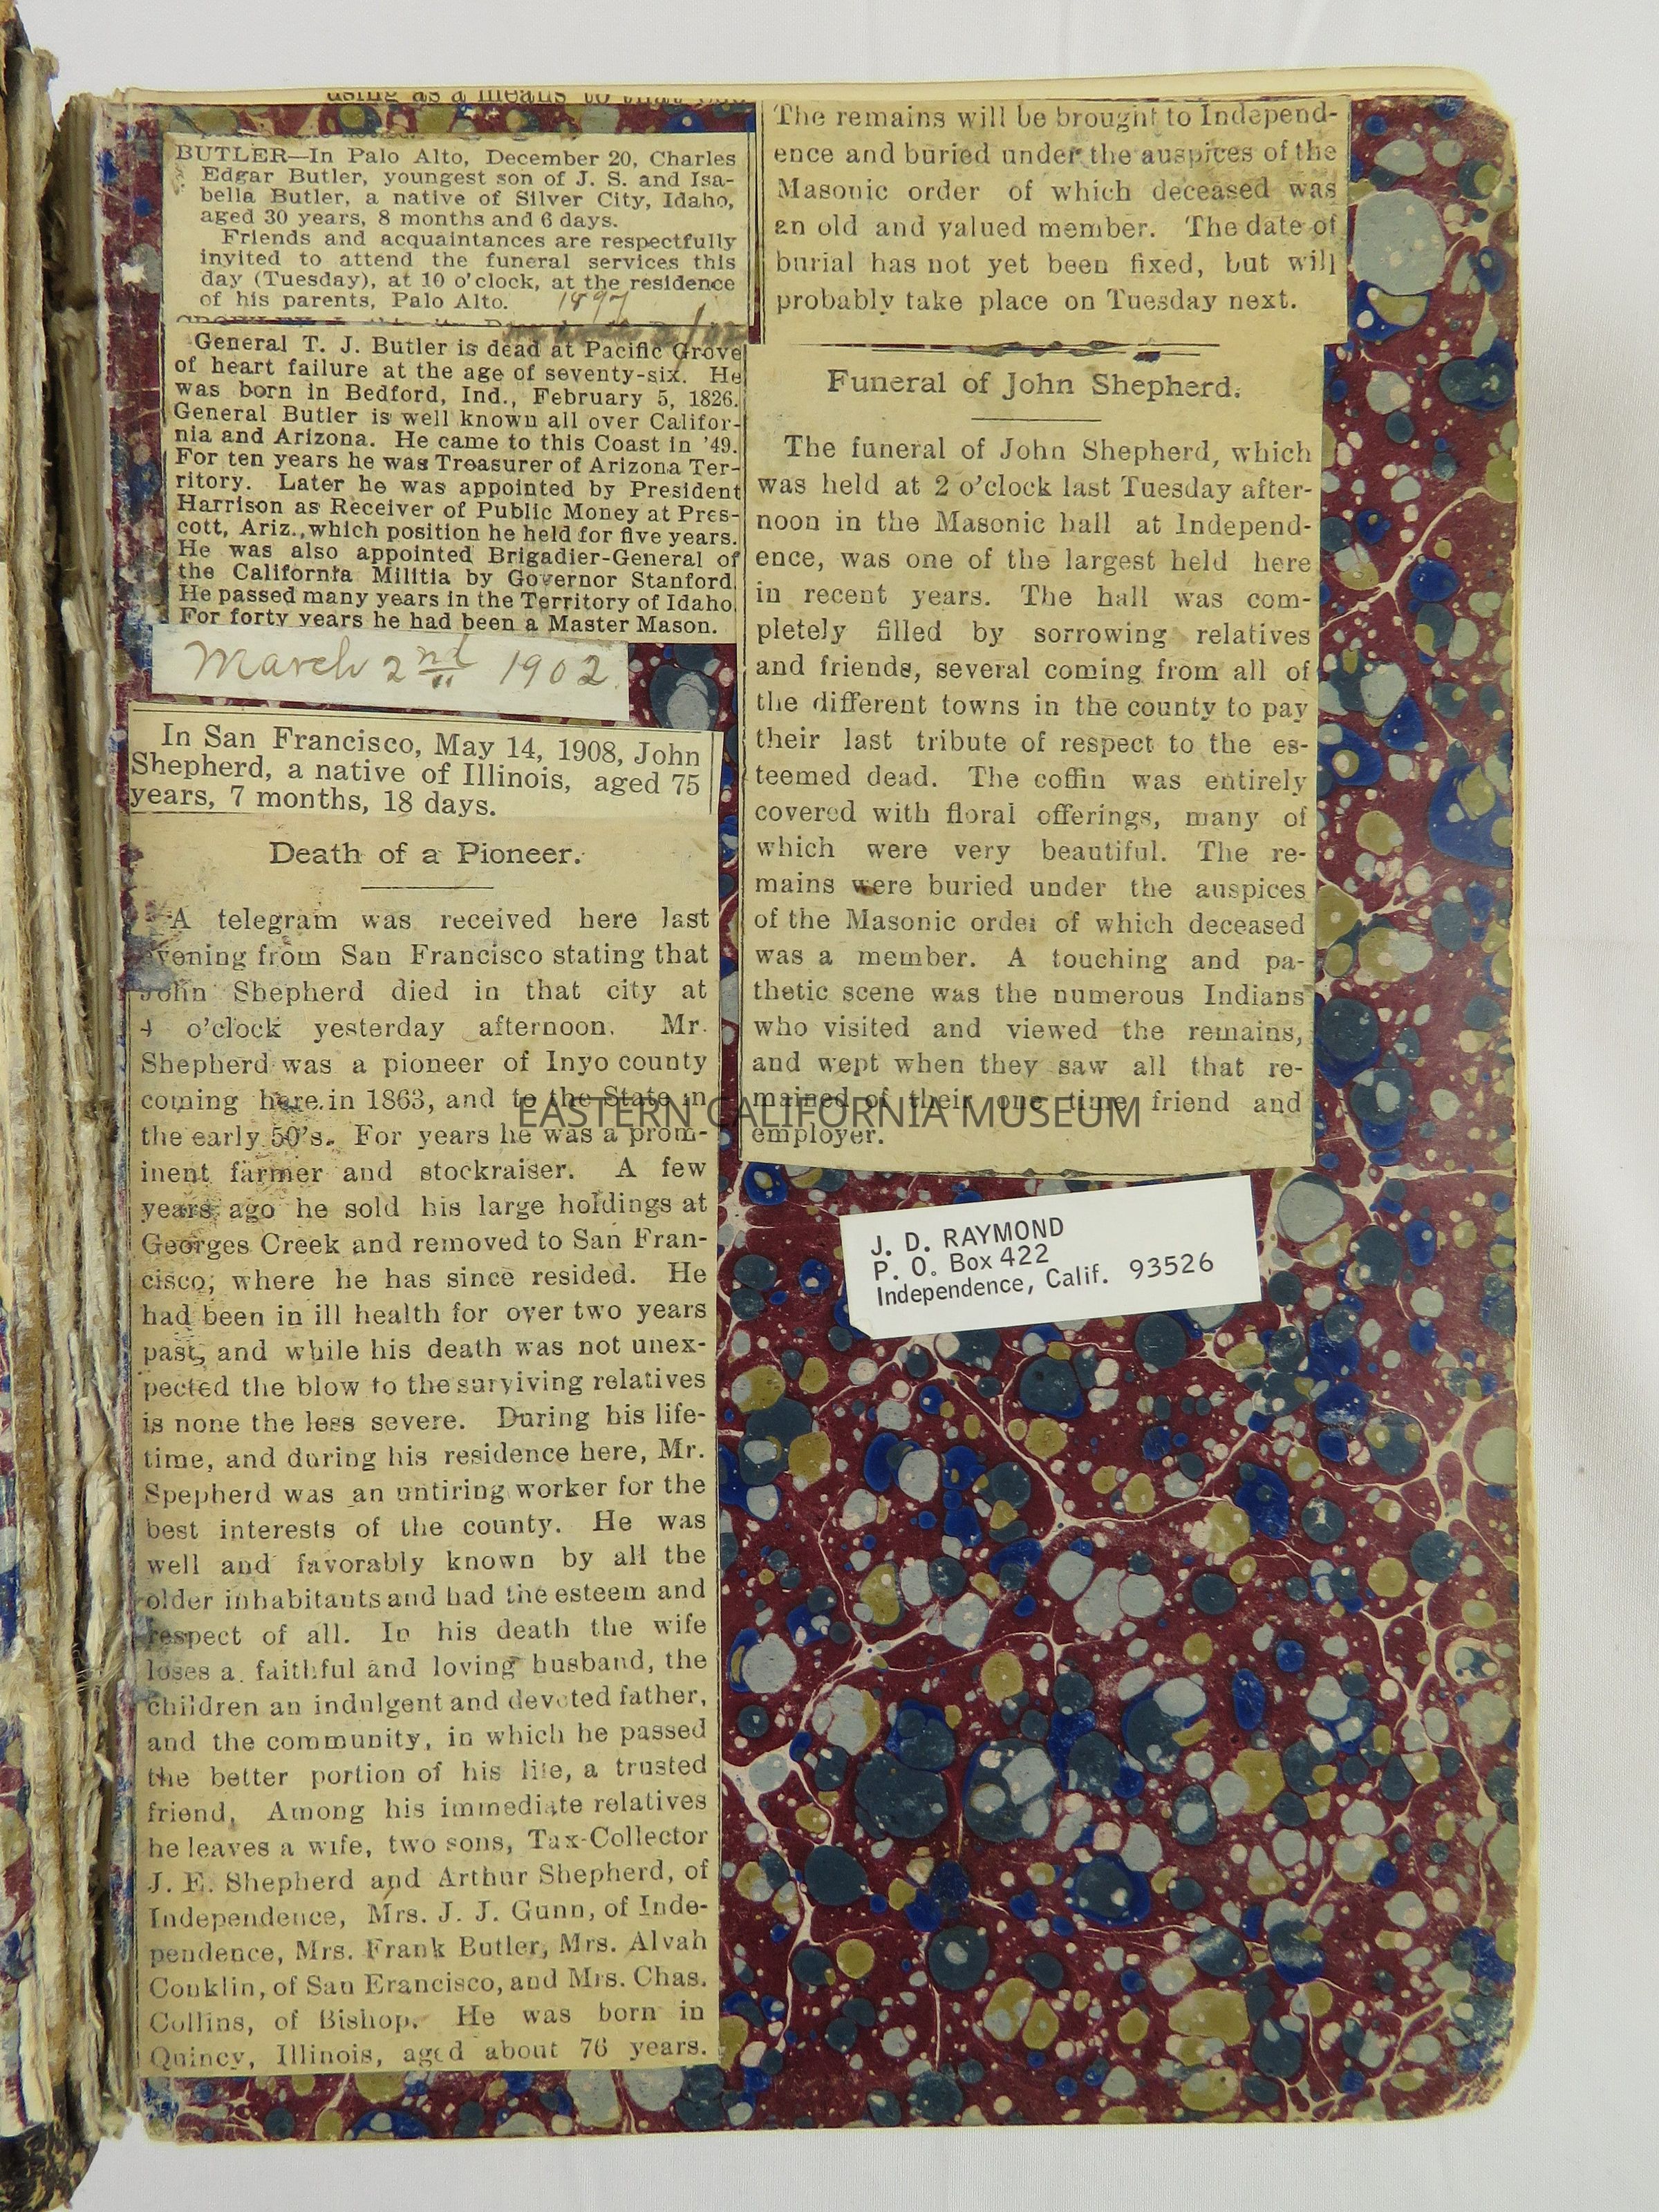 using as a means to that
BUTLER—In Palo Alto, December 20, Charles
Edgar Butler, youngest son of J. S. and Isa-
bella Butler, a native of Silver City, Idaho,
aged 30 years, 8 months and 6 days.
Friends and acquaintances are respectfully
invited to attend the funeral services this
day (Tuesday), at 10 o'clock, at the residence
of his parents, Palo Alto. 1897
General T. J. Butler is dead at Pacific Grove
of heart failure at the age of seventy-six. He
was born in Bedford, Ind., February 5, 1826.
General Butler is well known all over Califor-
nia and Arizona. He came to this Coast in '49.
For ten years he was Treasurer of Arizona Ter-
ritory. Later he was appointed by President
Harrison as Receiver of Public Money at Pres-
cott, Ariz., which position he held for five years.
He was also appointed Brigadier-General of
the California Militia by Governor Stanford.
He passed many years in the Territory of Idaho.
For forty years he had been a Master Mason.
March 2nd 1902.
In San Francisco, May 14, 1908, John
Shepherd, a native of Illinois, aged 75
years, 7 months, 18 days.
Death of a Pioneer.
A telegram was received here last
evening from San Francisco stating that
John Shepherd died in that city at
4 o'clock yesterday afternoon. Mr.
Shepherd was a pioneer of Inyo county
coming here in 1863, and to the State in
the early 50's. For years he was a prom-
inent farmer and stockraiser. A few
years ago he sold his large holdings at
Georges Creek and removed to San Fran-
cisco, where he has since resided. He
had been in ill health for over two years
past, and while his death was not unex-
pected the blow to the surviving relatives
is none the less severe. During his life-
time, and during his residence here, Mr.
Spepherd was an untiring worker for the
best interests of the county. He was
well and favorably known by all the
older inhabitants and had the esteem and
respect of all. In his death the wife
loses a faithful and loving husband, the
children an indulgent and devoted father,
and the community, in which he passed
the better portion of his life, a trusted
friend, Among his immediate relatives
he leaves a wife, two sons, Tax-Collector
J. E. Shepherd and Arthur Shepherd, of
Independence, Mrs. J. J. Gunn, of Inde-
pendence, Mrs. Frank Butler, Mrs. Alvah
Conklin, of San Erancisco, and Mrs. Chas.
Collins, of Bishop. He was born in
Quincy, Illinois, aged about 76 years.
The remains will be brought to Independ-
ence and buried under the auspices of the
Masonic order of which deceased was
an old and valued member. The date of
burial has not yet been fixed, but will
probably take place on Tuesday next.
Funeral of John Shepherd.
The funeral of John Shepherd, which
was held at 2 o'clock last Tuesday after-
noon in the Masonic hall at Independ-
ence, was one of the largest held here
in recent years. The hall was com-
pletely filled by sorrowing relatives
and friends, several coming from all of
the different towns in the county to pay
their last tribute of respect to the es-
teemed dead. The coffin was entirely
covered with floral offerings, many of
which were very beautiful. The re-
mains were buried under the auspices
of the Masonic order of which deceased
was a member. A touching and pa-
thetic scene was the numerous Indians
who visited and viewed the remains,
and wept when they saw all that re-
mained of their one time friend and
employer.
EASTERN CALIFORNIA MUSEUM
J. D. RAYMOND
P. O. Box 422
Independence, Calif. 93526